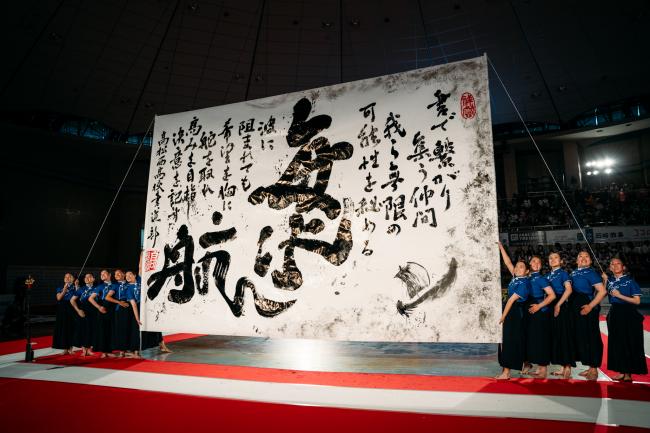 書で繋がり
集う仲間
我ら無限の
可能性を秘める
航
波に
阻まれても
希望を胸に
舵を取れ
高みを目指し
決意を記す
高松西高校書道部